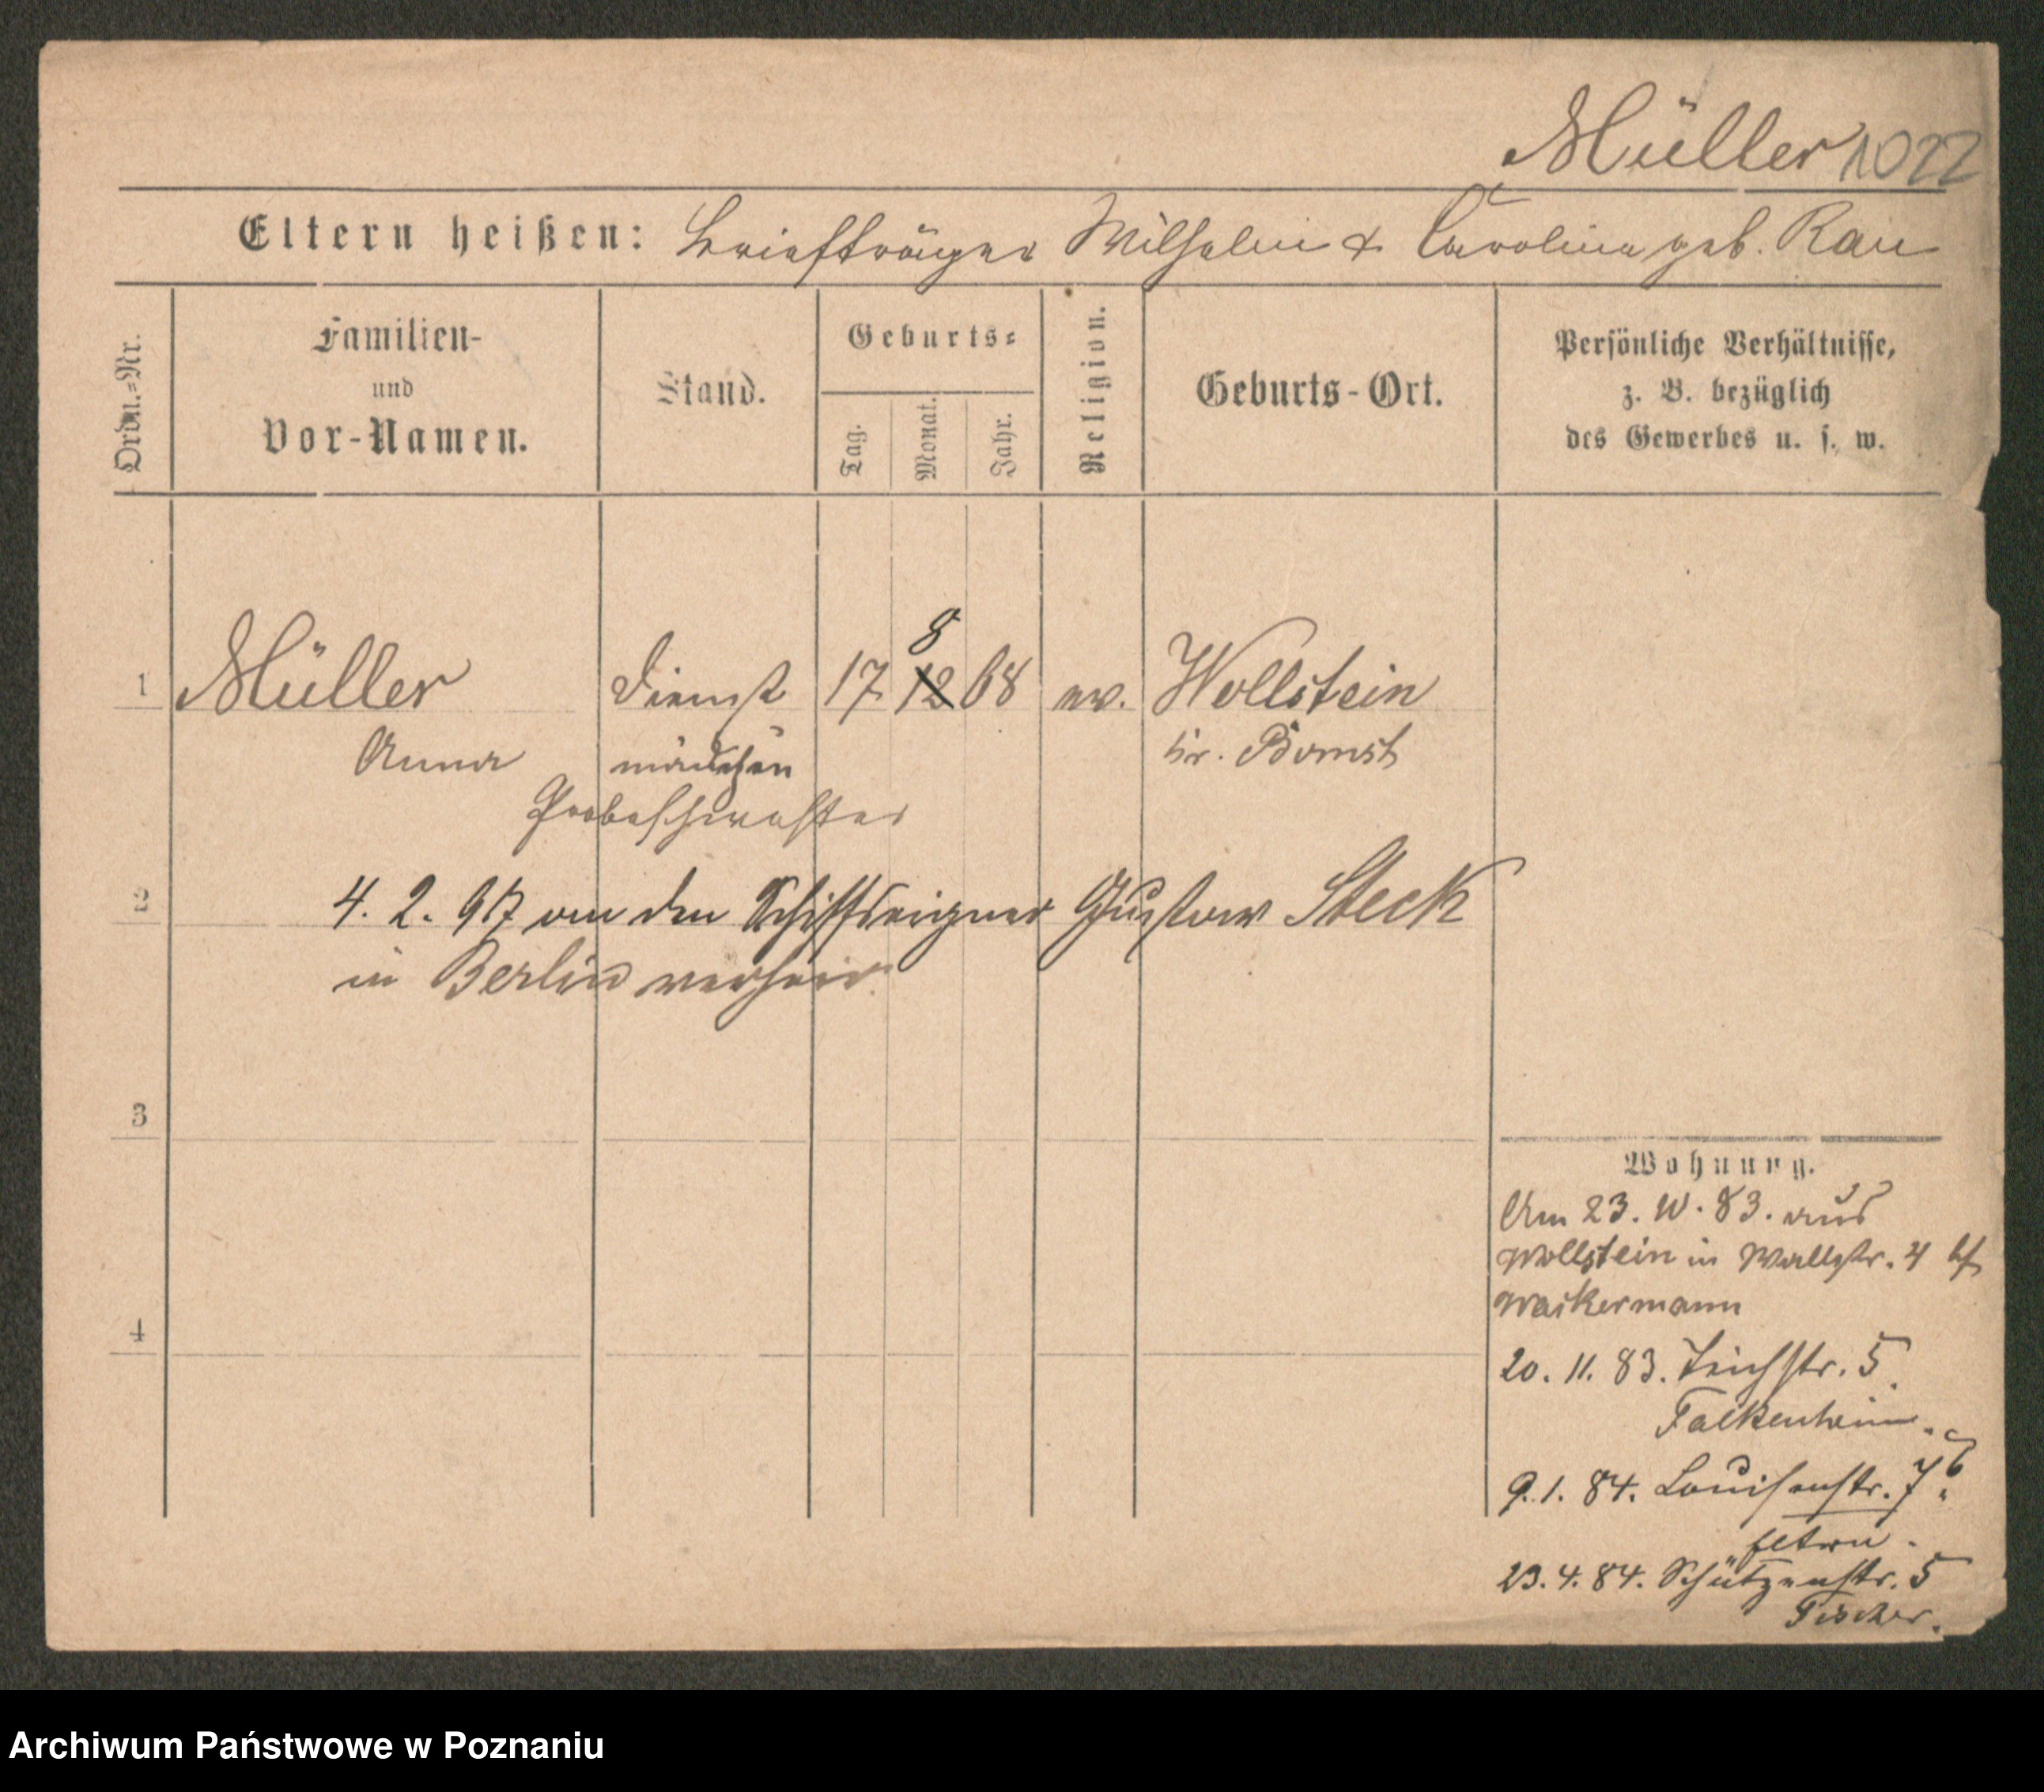 Müller 1022
Eltern heißen: Briefträger Wilhelm & Carolina geb. Rau
Ordn.-Nr.
Familien-
und
Vor-Namen.
Stand.
Geburts-
Tag.
Monat.
Jahr.
Religion.
Geburts-Ort.
Persönliche Verhältnisse,
z. B. bezüglich
des Gewerbes u. s. w.
8
1 Müller Dienst 17 12 68 ev. Wollstein
Anna mädchen Kr. Bomst
Probeschwester
2 4. 2. 97 an den Schiffseigner Gustav Steck
in Berlin verheir.
3
Wohnung.
Am 23. 10. 83. aus
Wollstein in Wallstr. 4 bei
Wackermann
4
20. 11. 83. Teichstr. 5
Falkenheim.
9. 1. 84. Louisenstr. 7b.
23. 4. 84. Schützenstr. 5
Fischer.
Archiwum Państwowe w Poznaniu